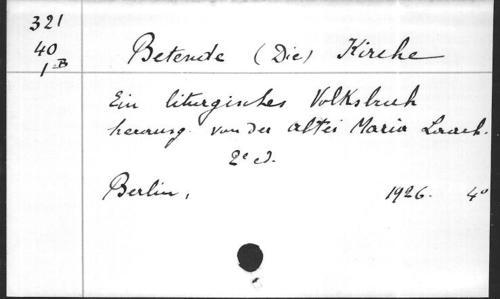 321
40
1-B
Betende (Die) Kirche
Ein liturgisches Volksbuch
herausg. von der Abtei Maria Laach.
2e éd.
Berlin, 1926. 4°